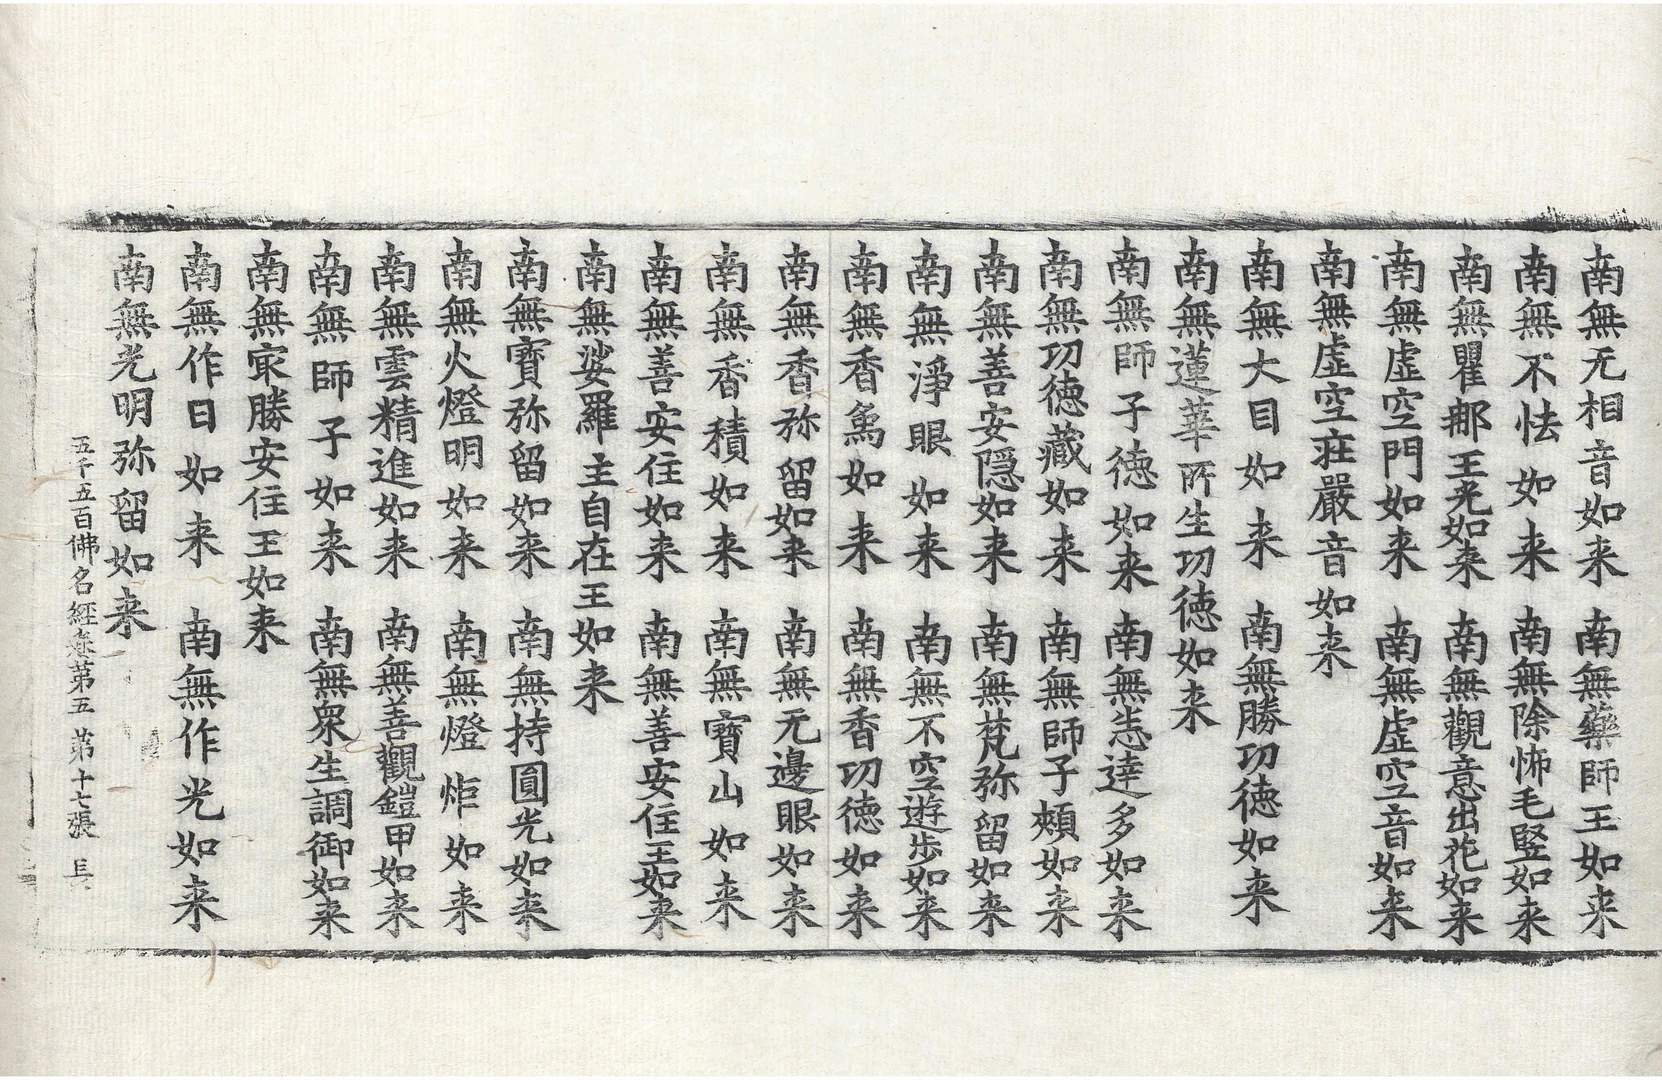 南無无相音如来　南無藥師王如来
南無不怯如来　南無除怖毛竪如来
南無瞿那王光如来　南無觀意出花如来
南無虛空門如来　南無虛空音如来
南無虛空莊嚴音如来
南無大目如来　南無勝功德如来
南無蓮華所生功德如来
南無師子德如来　南無悉達多如来
南無功德藏如来　南無師子頰如来
南無善安隱如来　南無梵弥留如来
南無淨眼如来　南無不空遊步如来
南無香象如来　南無香功德如来
南無香弥留如来　南無无邊眼如来
南無香積如来　南無寶山如来
南無善安住如来　南無善安住王如来
南無娑羅主自在王如来
南無寶弥留如来　南無持圓光如来
南無火燈明如来　南無燈炬如来
南無雲精進如来　南無善觀鎧甲如来
南無師子如来　南無衆生調御如来
南無㝡勝安住王如来
南無作日如来　南無作光如来
南無光明弥留如来
五千五百佛名經卷第五　第十七張　長